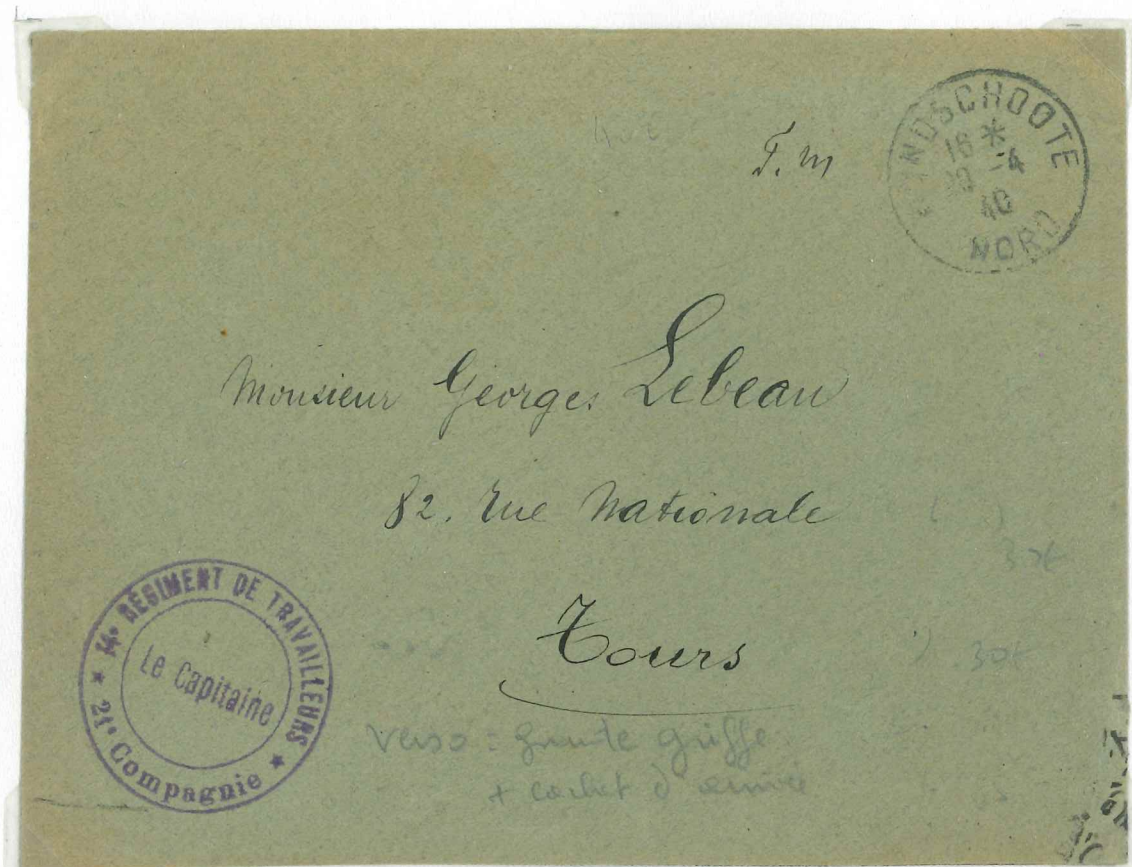 F. M
HONDSCHOOTE
16 *
-4
40
NORD
Monsieur Georges Lebeau
82. rue Nationale
Tours
14e RÉGIMENT DE TRAVAILLEURS
Le Capitaine
* 21e Compagnie *
30€
30€
verso : grande griffe
+ cachet d'arrivée